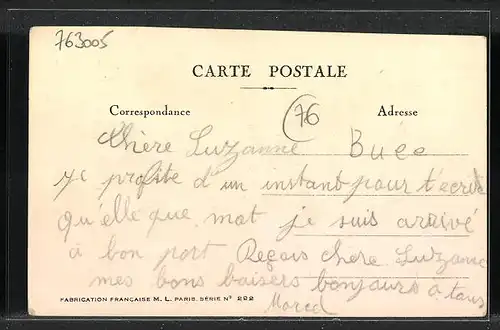 763005
CARTE POSTALE
76
Correspondance Adresse
Chère Luzanne Buee
Je profite d'un instant pour t'ecrire
qu elle que mot je suis arrivé
à bon port Reçois chere Luzanne
mes bons baisers bonjours a tous
Marcel
FABRICATION FRANÇAISE M. L. PARIS. SÉRIE N° 222